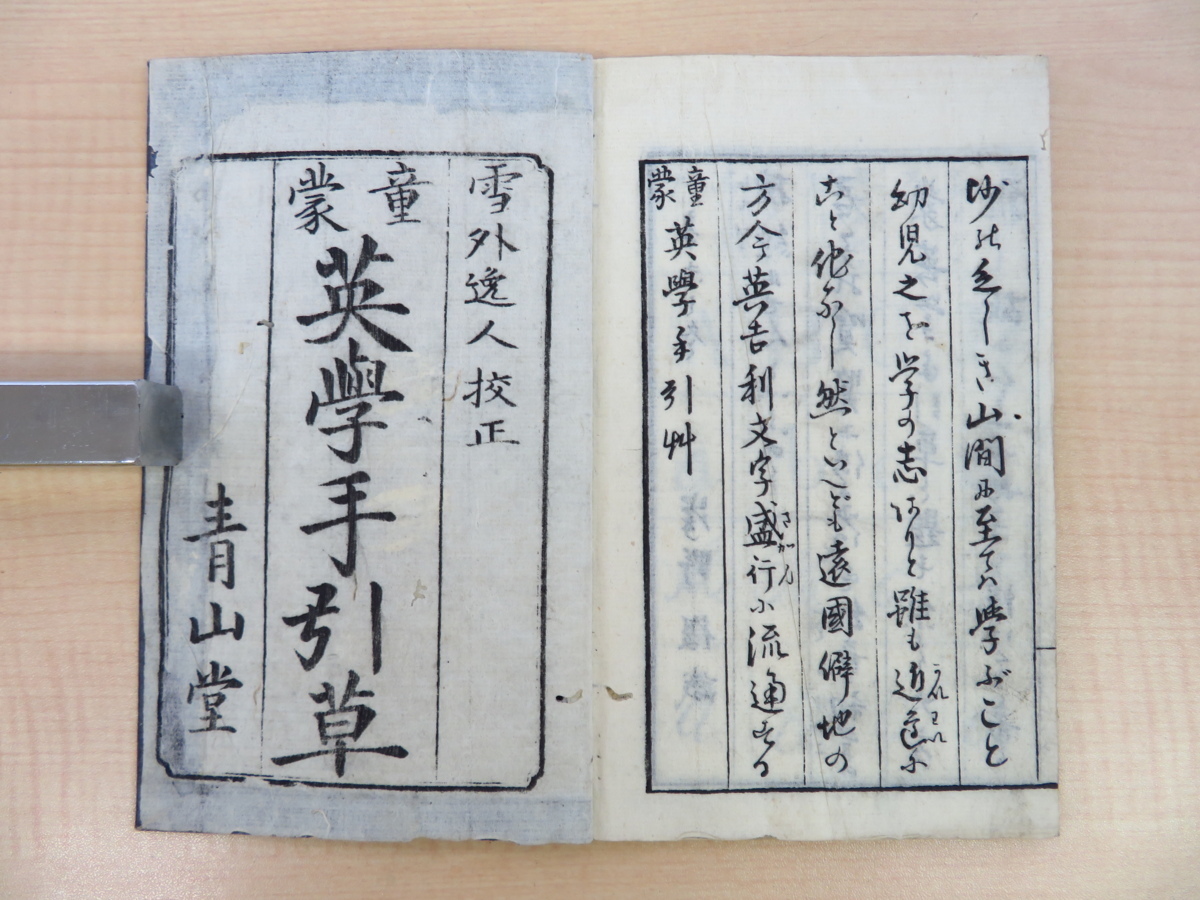 雪外逸人校正
童蒙英學手引草
青山堂
童蒙英學手引艸
方今英吉利文字盛行に流通する
さかん
こと他なし然といへども遠國僻地の
幼児之を学の志ありと雖も
師の乏しき山間に至てハ學ぶこと